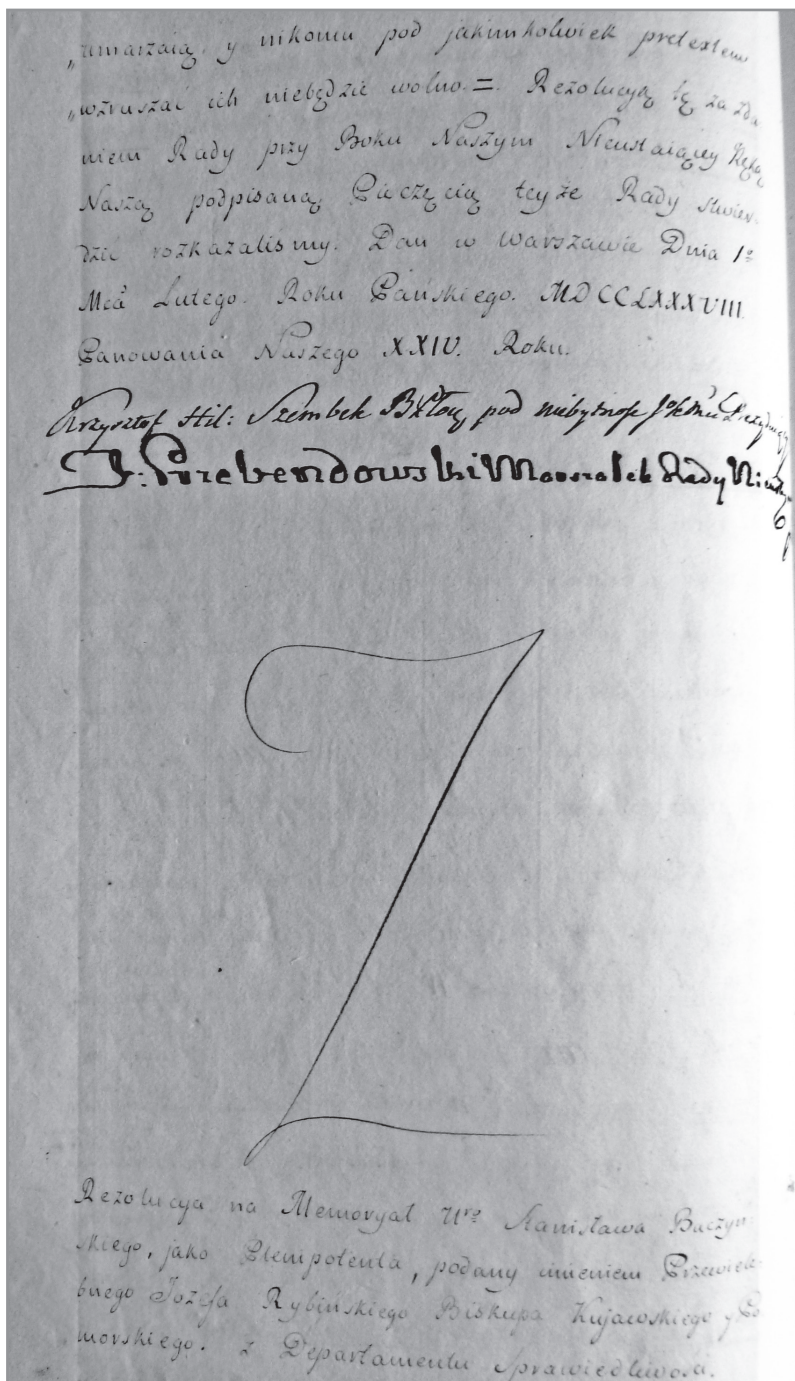 „umarzaią, y nikomu pod jakimkolwiek pretextem
„wzruszać ich niebędzie wolno. = Rezolucyą tę za zda
niem Rady przy Boku Naszym Nieustaiącey Ręką
Naszą podpisaną Pieczęcią teyże Rady stwier-
dzić rozkazalismy. Dan w Warszawie Dnia 1º
Mca Lutego. Roku Pańskiego. MDCCLXXXVIII
Panowania Naszego XXIV. Roku.
Krzysztof Hil: Szembek pod
P: Przebendowski Marszałek Rady
Rezolucya na Memoryał Urº Stanisława Buczyń-
skiego, jako Plenipotenta, podany imieniem Przewiele-
bnego Jozefa Rybińskiego Biskupa Kujawskiego y Po
morskiego. z Departamentu Sprawiedliwosci.